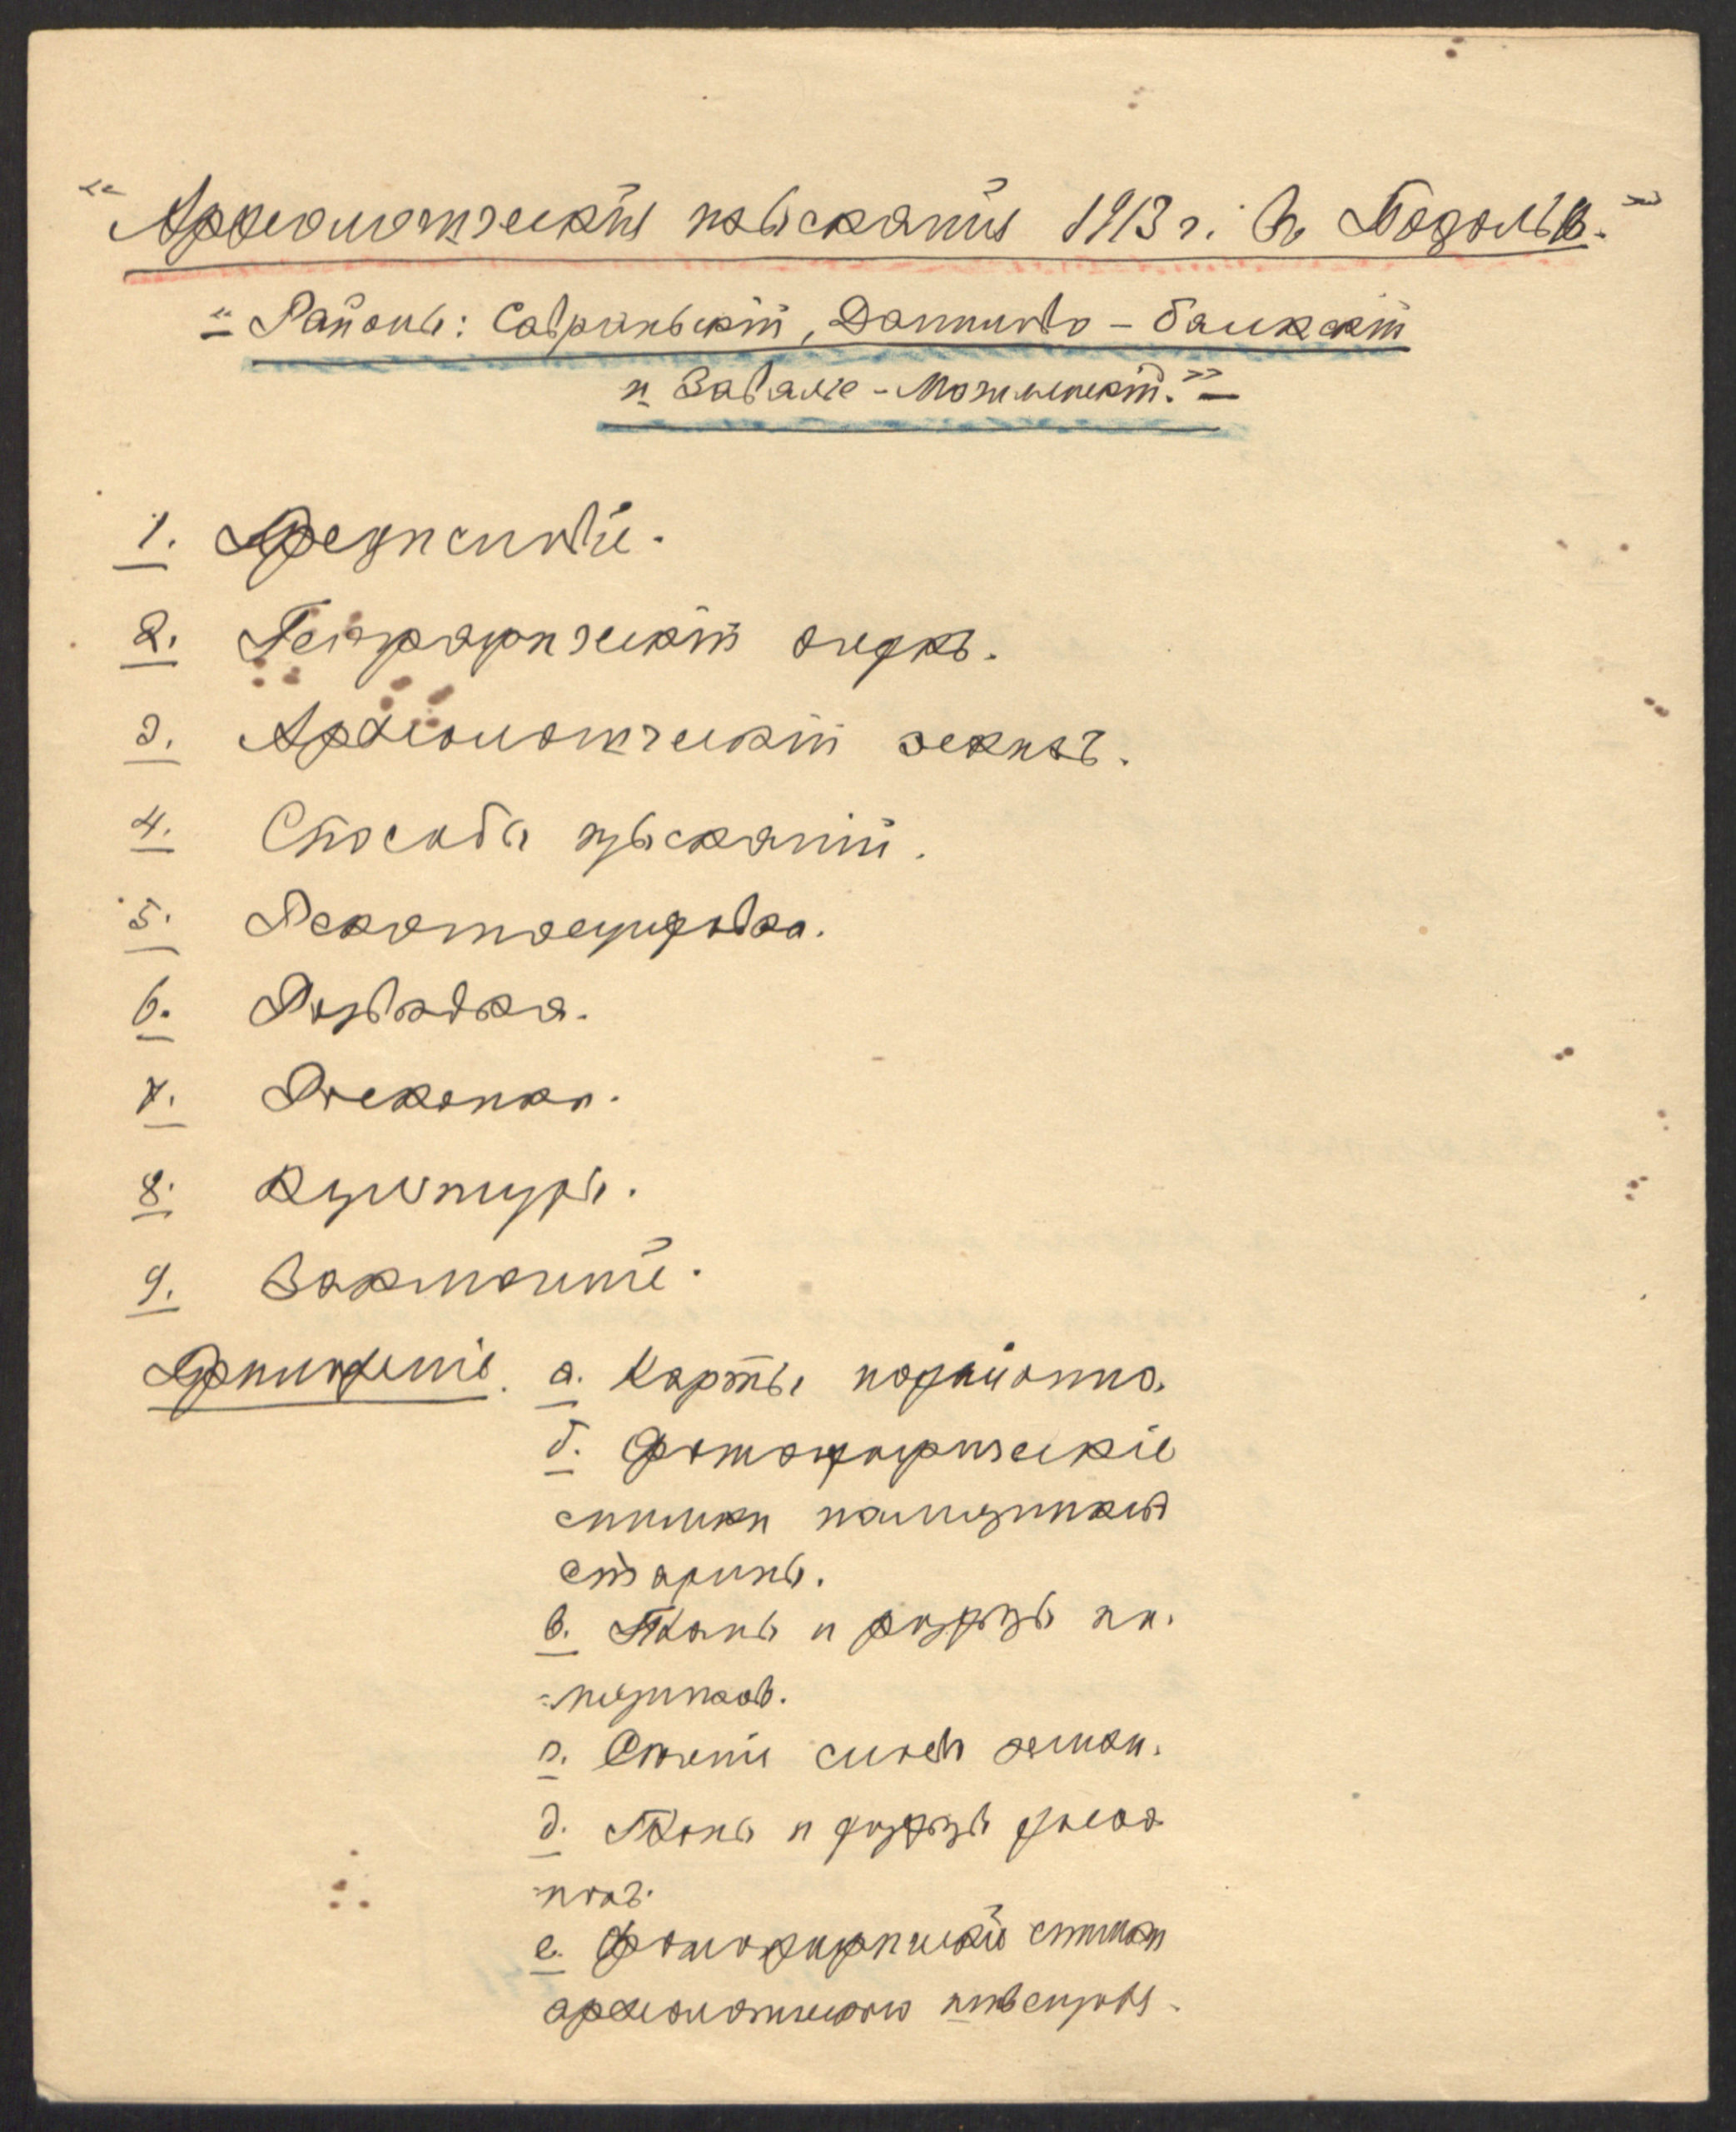 „Археологическія изысканія 1913 г. въ Подольѣ.“
„Районы: Савраньскій, Данилово-балкскій
и Завалье-Могилянскій.“
1. Предисловіе.
2. Географическій очеркъ.
3. Археологическій очеркъ.
4. Способы изысканій.
5. Рекогносцировка.
6. Развѣдка.
7. Раскопки.
8. Культуры.
9. Заключеніе.
Приложеніе. а. Карты порайонно.
б. Фотографическіе
снимки памятниковъ
старины.
в. Планы и разрѣзы па-
мятниковъ.
г. слоевъ земли.
д. Планы и разрѣзы раско-
покъ.
е. Фотографическіе снимки
археологического инвентаря.